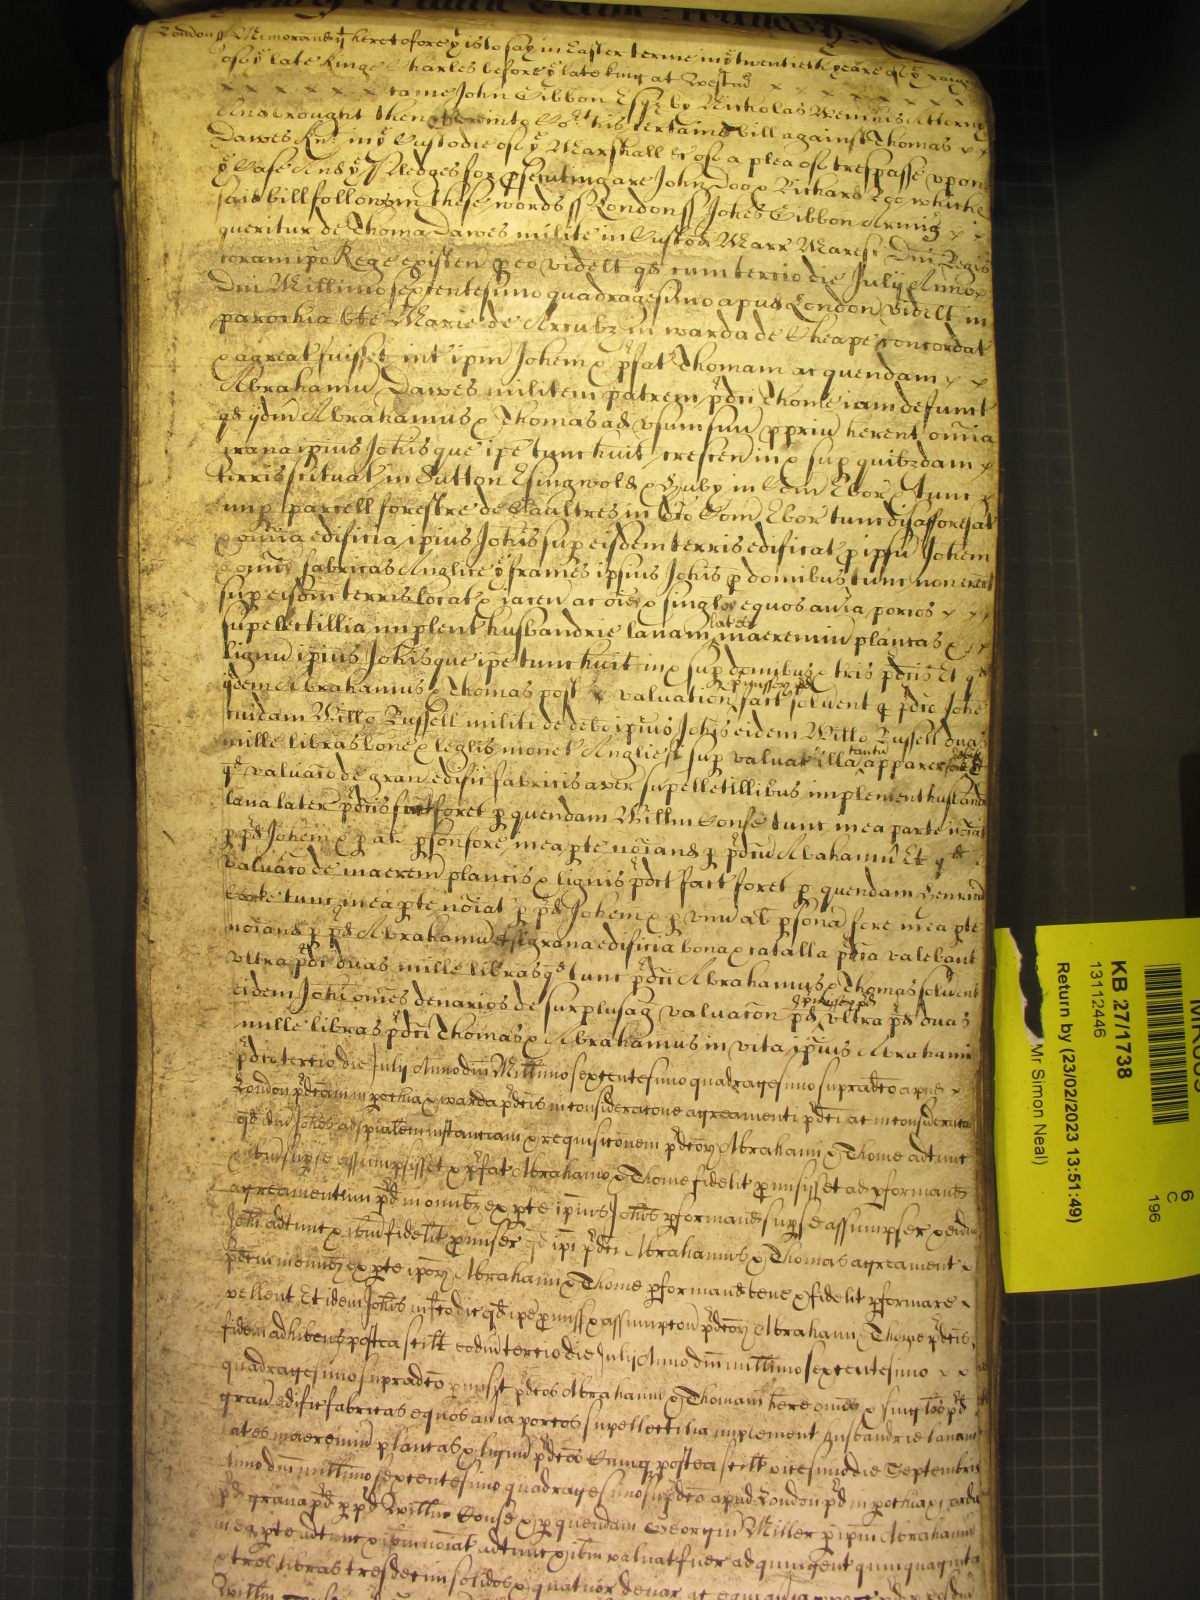 London ss Memorand yt heretofore yt is to say in Easter terme in ye twentieth yeare of ye raigne
of ye late Kinge Charles before ye late king at Westm
came John Gibbon Esqr by Nicholas Wemins Attorny
And brought then into Cort his certaine bill against Thomas
Dawes Knt in ye Custodie of ye Marshall &c of a plea of trespasse upon
ye Case And ye Pledges for psecuting are John Doo & Richard Roo which
said bill follows in these words ss London ss Johes Gibbon Armig
queritur de Thoma Dawes milite in Custod Marr Maresc Dni Regis
coram ipo Rege existen p eo videlt qd cum tercio die July Anno
Dni Millimo sexcentesimo quadragesimo apud London videlt in
parochia bte Marie de Arcubz in warda de Cheape concordat
& agreat fuisset int ipm Johem & pfat Thomam ac quendam
Abrahamu Dawes militem patrem pdci Thome iam defunct
qd ijdm Abrahamus & Thomas ad usum suu ppriu herent omia
grana ipius Johis que ipe tunc huit crescen in & sup quibzdam
terris scituat in Sutton Esingwold & Huby in Com Ebor & tunc
nup parcell forestre de Gaultres in dco Com Ebor tunc disafforestat
& omia edificia ipius Johis sup eisdem terris edificat p ipsu Johem
& omes fabricas Anglice ye frames ipsius Johis p domibus tunc non erect
sup eisdm terris locat & iacen ac oies & singlos equos aia porcos
supelectillia implent husbandrie lanam lates maeremiu plantas &
lignu ipius Johis que ipe tunc huit in & sup domibus & tris pdcis Et qd
ijdem Abrahamus & Thomas post valuation fact solvent p pdic Johe
cuidam Willo Russell militi de debo ipius Johis eidem Willo Russell duas
mille libras bone & leglis monet Anglie si sup valuat illa tantu apparer
qd valuaco de gran edific fabricis aver supelletillibus implement husband
lana later pdcis fact foret p quendam Willm Conse tunc in ea parte noiat
p pd Johem & p al pson fore in ea pte noiand p pdcu Abrahamu Et qd
valuaco de maerem plantis & lignis pdct fact foret p quendam Henricu
tunc in ea pte noiat p pd Johem & p unu al psona fore in ea pte
noiand p pd Abrahamu et si grana edificia bona & catalla pdca valebant
ultra pdc duas mille libras qd tunc pdci Abrahamus & Thomas solvent
eidem Johi omes denarios de surplusag valuacon pd ultra pd duas
mille libras pdci Thomas & Abrahamus in vita ipius Abrahami
pdco tercio die July Anno dni Millimo sexcentesimo quadragesimo supradco apud
London pdcam in pochia & warda pdcis in consideracone agreamenti pdci ac in consideracone
qd idm Johes ad spialem instanciam & requisiconem pdcor Abrahami & Thome adtunc
& ibm sup se assumpsisset & pfat Abrahamo & Thome fidelit pmisisset ad pformand
agreamentum pd in omibz ex pte ipius Johis pformand sup se assumpser & eidm
Johi adtunc & ibm fidelit pmiser qd ipi pdci Abrahamus & Thomas agreament
pdcm in omibz ex pte ipor Abrahami & Thome pformand bene & fidelit pformare
vellent Et idem Johes in fco dic qd ipe pmiss & assumpcon pdcor Abrahami & Thome pdcis
fidem adhibens postea scilt eodm tercio die July Anno dni millimo sexcentesimo
quadragesimo supradco pmisit pdcos Abrahamu & Thomam here omes & singlos pd
gran edific fabricas equos aia porcos supellectilia implement husbandrie lanam
lates maeremiu plantas & lignu pdcos Cumq postea scilt vicesimo die Septembris
Anno dni millimo sexcentesimo quadragesimo supdco apud London pd in pochia & warda
pd grana pd p pd Willm Conse & p quendam Georgiu Miller p ipm Abrahamu
in ea pte adtunc & ibm noiat adtunc & ibm valuat fuer ad quingent quinquaginta
& tres libras tresdecim solidos & quatuor denar
KB 27/1738
13112446
Return by (23/02/2023 13:51:49)
Mr Simon Neal)
6
C
196